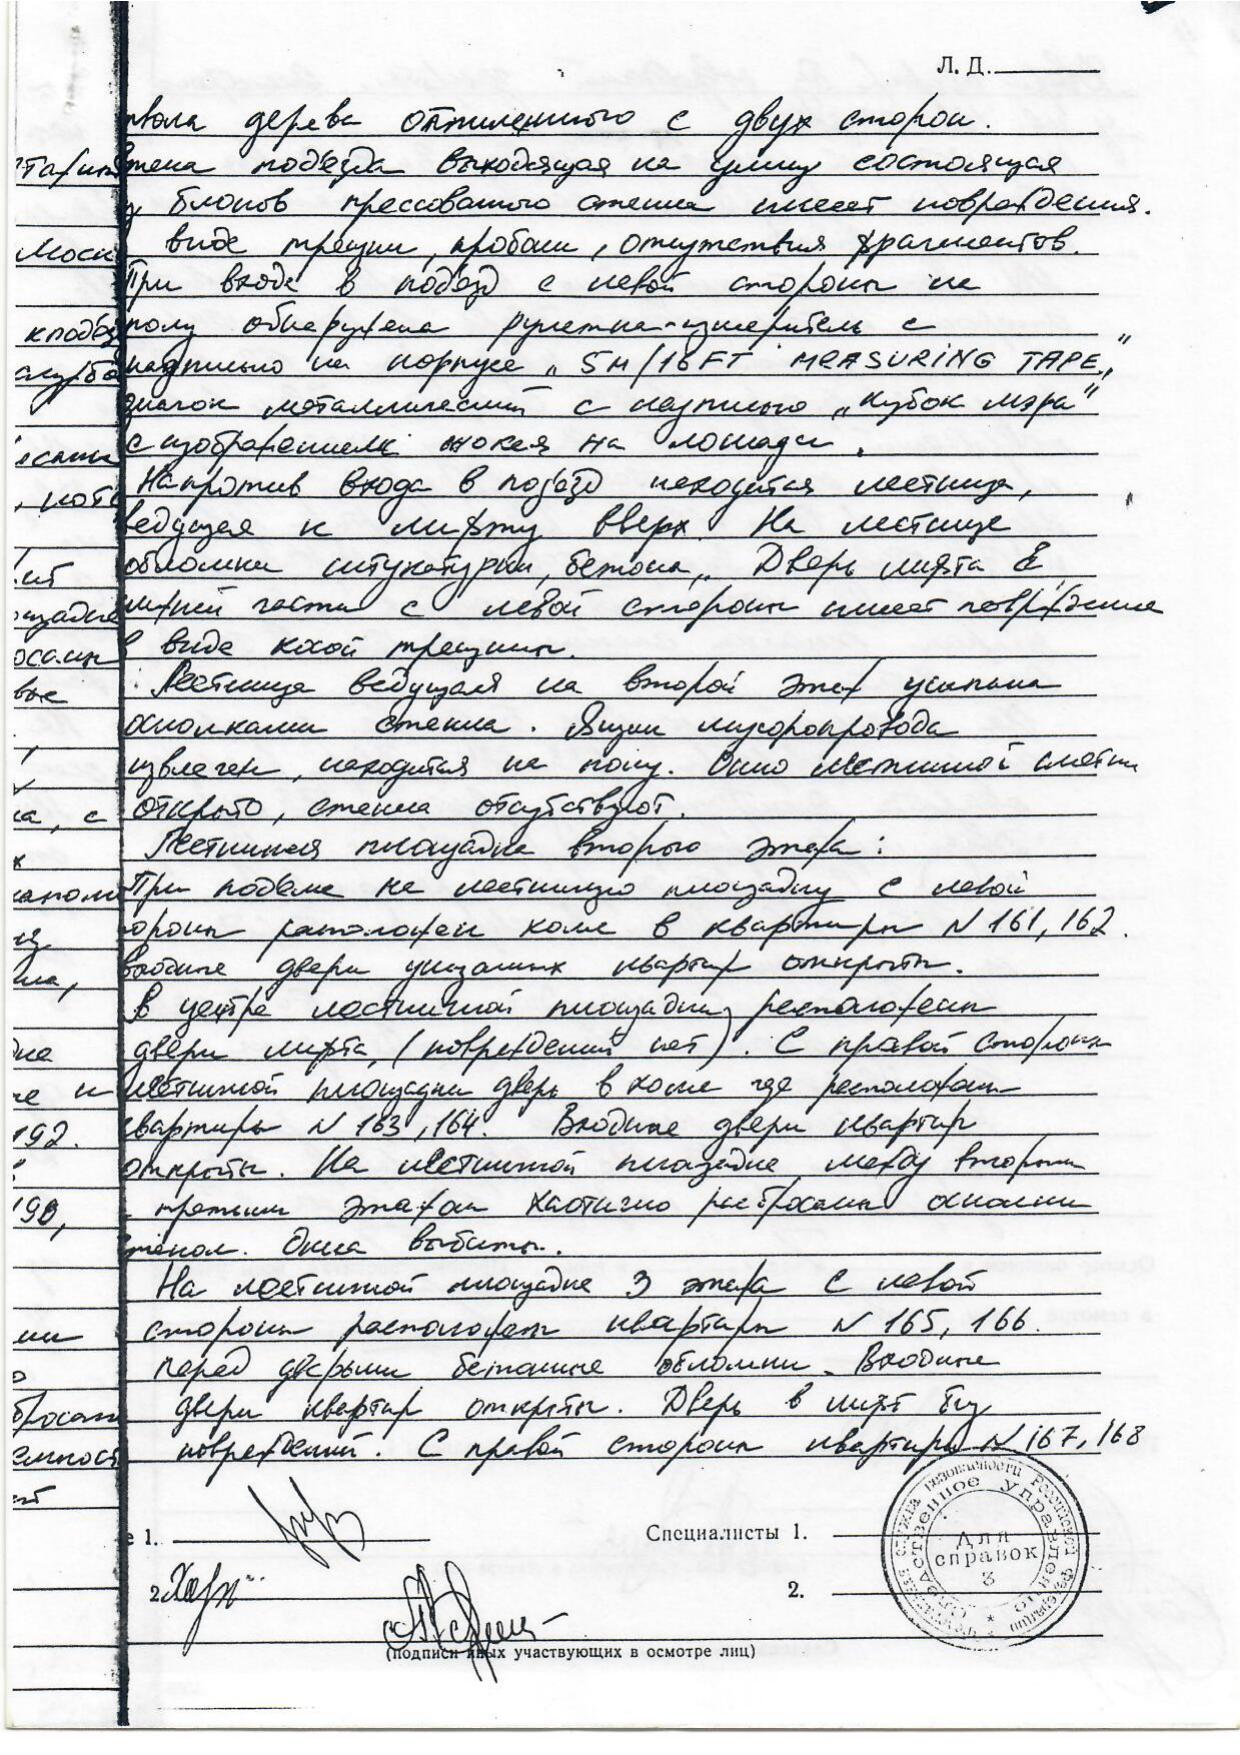 Л. Д.
ствола дерева отпиленного с двух сторон.
стена подъезда выходящая на улицу состоящая
из блоков прессованого стекла имеет повреждения.
виде трещин, пробоин, отсутствия фрагментов.
При входе в подъезд с левой стороны на
полу обнаружена рулетка-измеритель с
надписью на корпусе „5М/16FT MEASURING TAPE„"
значок металлический с надписью „Кубок мэра"
с изображением жокея на лошади.
Напротив входа в подъезд находится лестница,
ведущая к лифту вверх. На лестнице
обломки штукатурки, бетона,. Дверь лифта в
нижней части с левой стороны имеет повреждение
в виде косой трещины.
Лестница ведущая на второй этаж усыпана
осколками стекла. Ящик мусоропровода
извлечен, находится на полу. Окно лестничной клетки
открыто, стекла отсутствуют.
Лестничная площадка второго этажа:
При подъеме на лестничную площадку с левой
стороны расположен холл в квартиры N 161, 162.
входные двери указанных квартир открыты.
В центре лестничной площадки расположены
двери лифта, (повреждений нет). С правой стороны
лестничной площадки дверь в холл где расположены
квартиры N 163, 164. Входные двери квартир
открыты. На лестничной площадке между вторым
третьим этажом хаотично разбросаны осколки
стекол. Окна выбиты.
На лестничной площадке 3 этажа с левой
стороны расположены квартиры N 165, 166.
перед дверьми бетонные обломки. Входные
двери квартир открыты. Дверь в лифт без
повреждений. С правой стороны квартиры N 167, 168
е 1.
Специалисты 1.
2.
2.
(подписи иных участвующих в осмотре лиц)
Федеральная служба безопасности Российской Федерации
Следственное управление
Для
справок
3